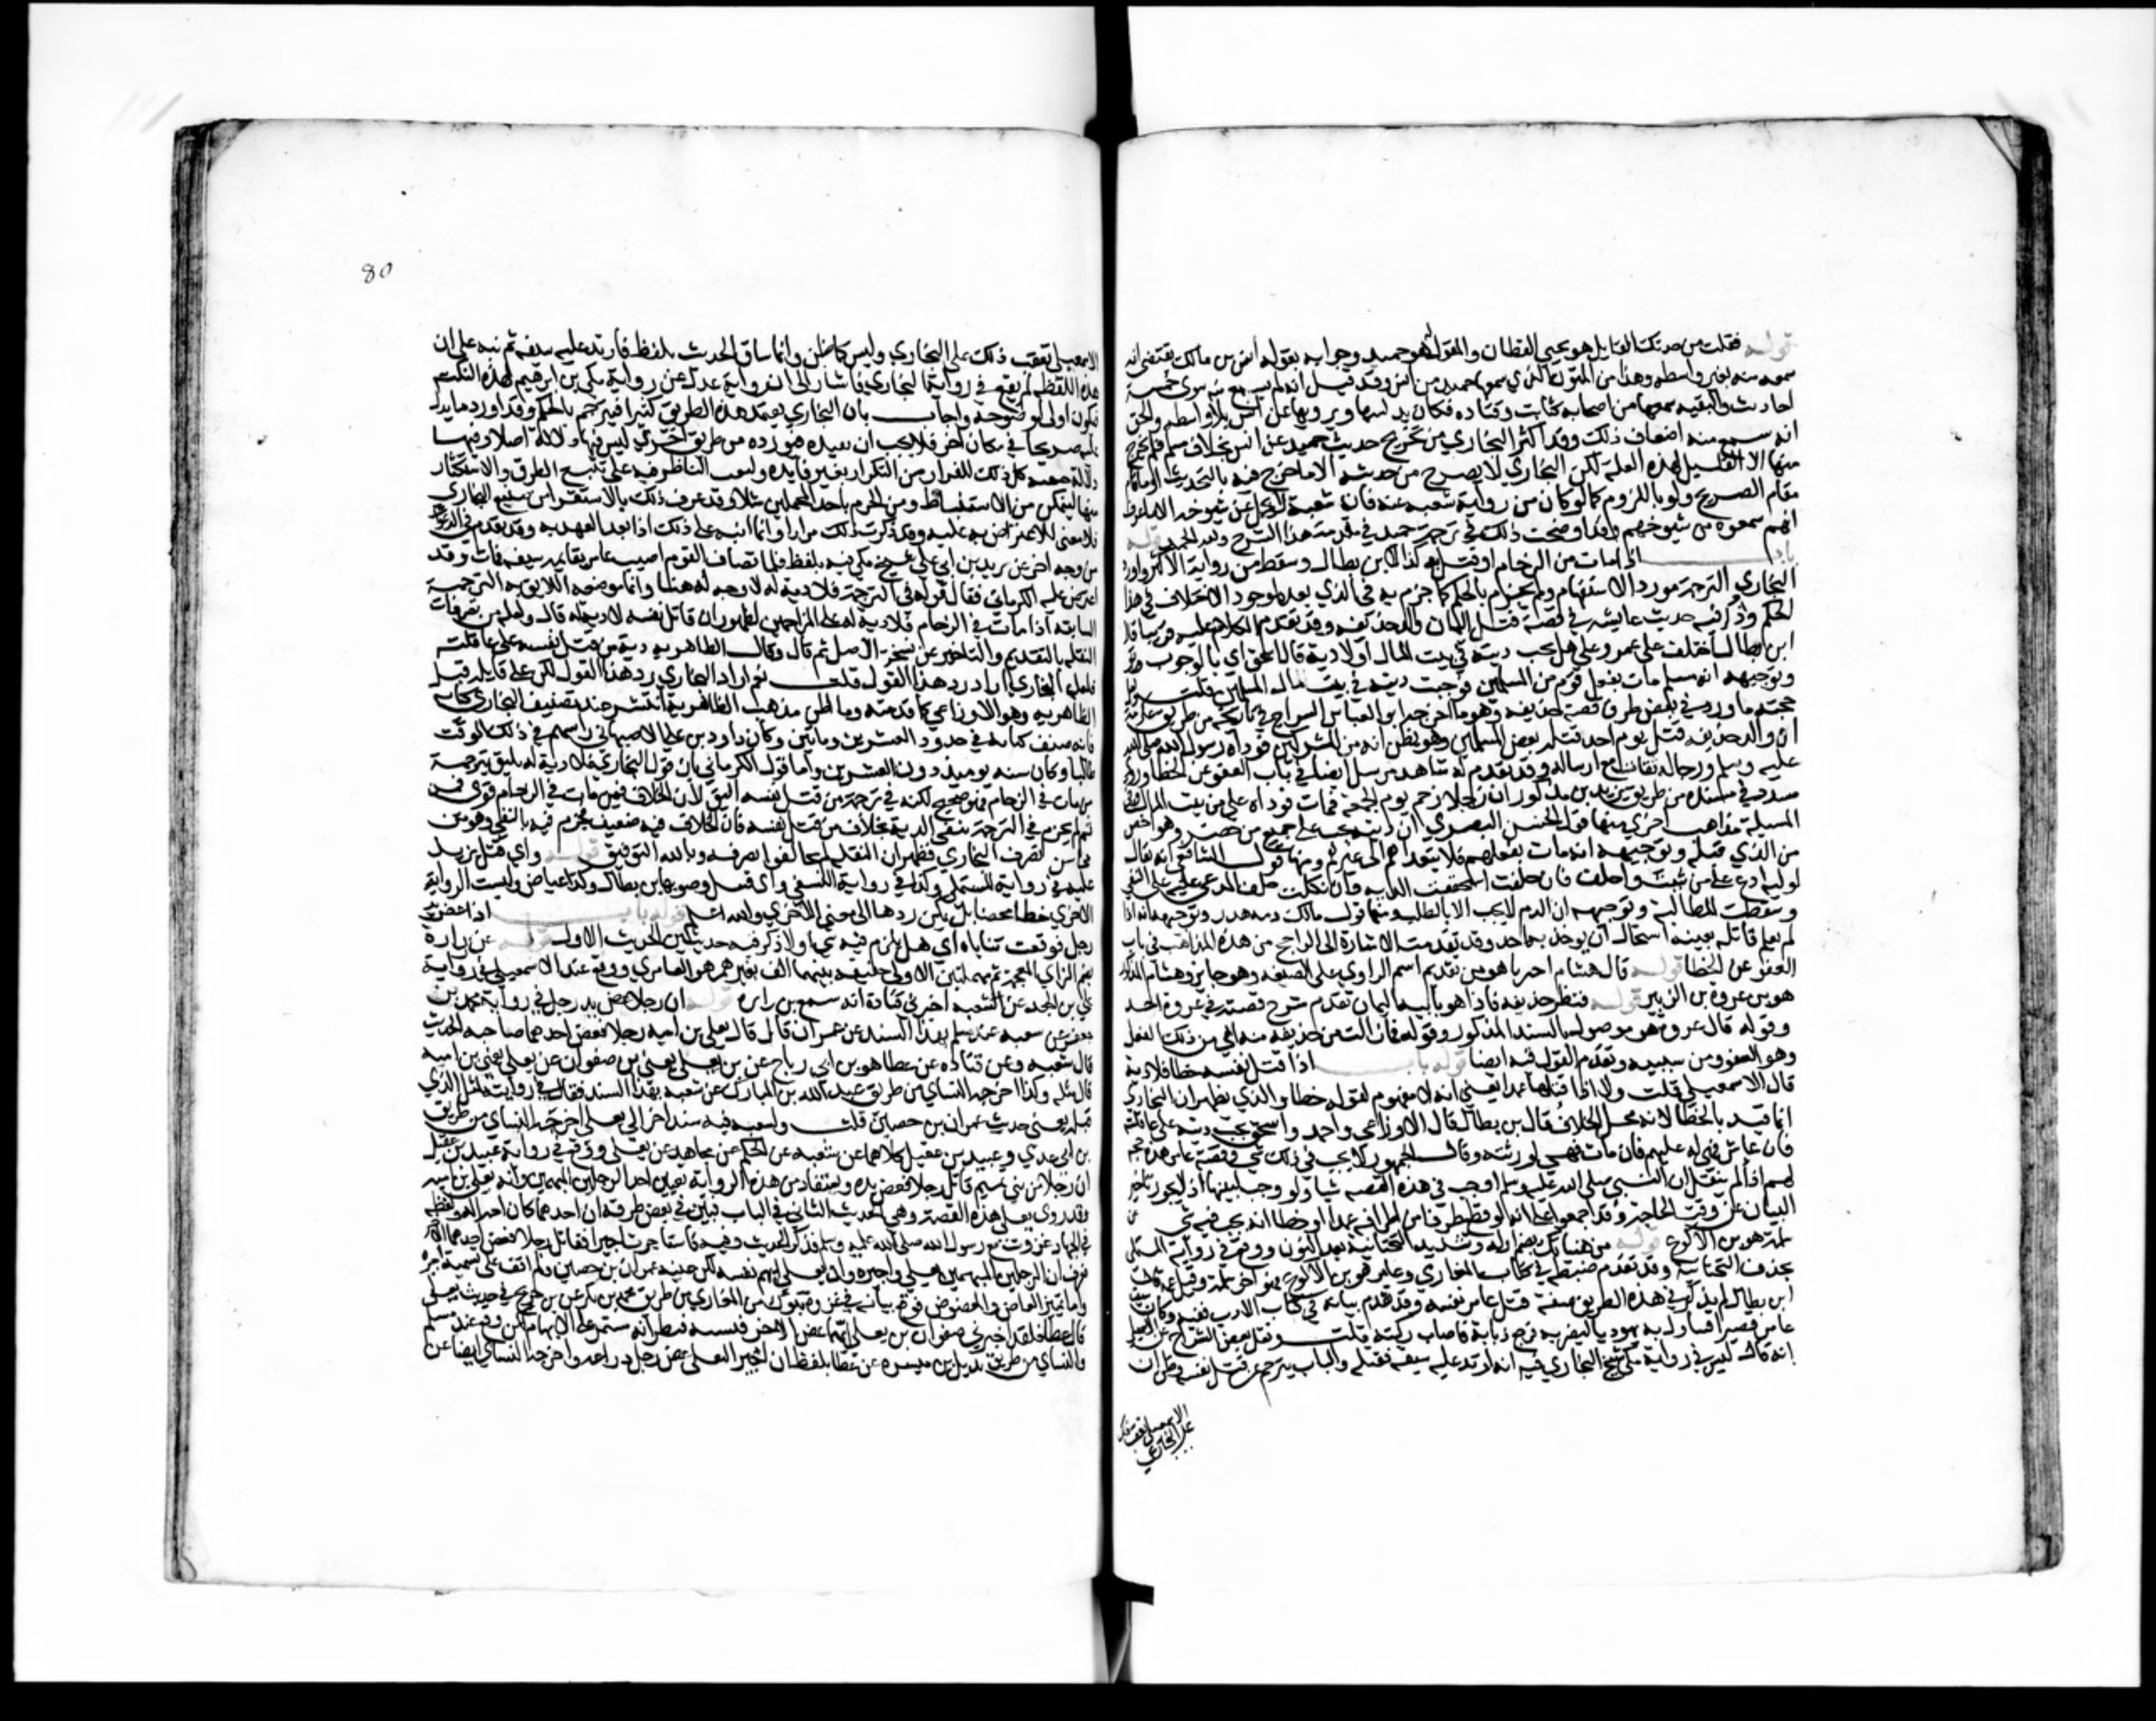 قوله فقلت من حدثك القايل هو يحيى القطان والمقول له هو حميد وجوابه بقوله انس بن مالك يقتضي انه
سمعه منه بغير واسطه وهذا من المتون التي سمعها حميد من انس وقد قيل انه لم يسمع منه سوى خمسة
احاديث والبقيه سمعها من اصحابه كثابت وقتاده فكان يدلسها ويرويها عن انس بلا واسطه والحق
انه سمع منه اضعاف ذلك وقد اكثر البخاري من تخريج حديث حميد عن انس بخلاف مسلم فلم يخرج
منها الا القليل لهذه العلة لكن البخاري لا يخرج من حديثه الا ما صرح فيه بالتحديث او ما قام
مقام التصريح ولو باللزوم كما لو كان من رواية شعبه عنه فان شعبة لا يحمل عن شيوخه الا ما عرف
انهم سمعوه من شيوخهم وقد اوضحت ذلك في ترجمة حميد في مقدمة هذا الشرح ولله الحمد قوله
باب اذا مات من الزحام او قتل به كذا لابن بطال وسقط من رواية الاكثر واورد
البخاري الترجمة مورد الاستفهام ولم يجزم بالحكم كما جزم به في الذي بعده لوجود الاختلاف في هذا
الحكم وذكر فيه حديث عايشه في قصة قتل اليمان والد حذيفه وقد تقدم الكلام عليه قريبا قال
ابن بطال اختلف على عمر وعلي هل تجب ديته في بيت المال او لا وبه قال اسحق اي بالوجوب
وتوجيهه انه مسلم مات بفعل قوم من المسلمين فوجبت ديته في بيت مال المسلمين قلت ولعل
حجته ما ورد في بعض طرق قصة حذيفه وهو ما اخرجه ابو العباس السراج في تاريخه من طريق عكرمة
ان والد حذيفه قتل يوم احد قتله بعض المسلمين وهو يظن انه من المشركين فوداه رسول الله صلى الله
عليه وسلم ورجاله ثقات مع ارساله وقد تقدم له شاهد مرسل ايضا في باب العفو عن الخطا وروى
مسدد في مسنده من طريق يزيد بن مذكور ان رجلا زحم يوم الجمعة فمات فوداه علي من بيت المال وفي
المسيلة مذاهب اخرى منها قول الحسن البصري ان ديته تجب على جميع من حضر وهو اخص
من الذي قبله وتوجيهه انه مات بفعلهم فلا يتعداهم الى غيرهم ومنها قول الشافعي انه يقال
لوليه ادع على من شيت واحلف فان حلفت استحققت الديه وان نكلت حلف المدعى عليه على النفي
وسقطت المطالبة وتوجيهه ان الدم لا يجب الا بالطلب ومنها قول مالك دمه هدر وتوجيهه انه اذا
لم يعلم قاتله بعينه استحال ان يوخذ به احد وقد تقدمت الاشارة الى الراجح من هذه المذاهب في باب
العفو عن الخطا قوله قال هشام اخبرنا هو من تقديم اسم الراوي على الصيغه وهو جايز وهشام المذكور
هو ابن عروة بن الزبير قوله فنظر حذيفه فاذا هو بابيه اليمان تقدم شرح قصته في غزوة احد
وقوله قال عروة هو موصول بالسند المذكور وقوله فما زالت من حذيفه منه اي من ذلك الفعل
وهو العفو ومن سببيه وتقدم القول فيه ايضا قوله باب اذا قتل نفسه خطا فلا دية له
قال الاسمعيلي قلت ولا اذا قتلها عمدا يعني انه لا مفهوم لقوله خطا والذي يظهر ان البخاري
انما قيد بالخطا لانه محل الخلاف قال بن بطال قال الاوزاعي واحمد واسحق تجب ديته على عاقلته
فان عاش فهي له عليهم فان مات فهي لورثته وقال الجمهور لا يجب في ذلك شي وقصة عامر هذه حجة
لهم اذ لم ينقل ان النبي صلى الله عليه وسلم اوجب في هذه القصه شيا ولو وجب لبينها اذ لا يجوز تاخير
البيان عن وقت الحاجة وقد اجمعوا على انه لو قطع طرفا من اطرافه عمدا او خطا انه لا يجب فيه شي قوله عن
سلمة هو بن الاكوع قوله من هنياتك بضم اوله وتشديد التحتانية بعد النون ووقع في رواية المستملي
بحذف التحتانيه وقد تقدم ضبطه في كتاب المغازي وعامر هو بن الاكوع فهو اخو سلمة وقيل عمه قال
ابن بطال لم يذكر في هذه الطريق صفة قتل عامر نفسه وقد تقدم بيانه في كتاب الادب ففيه وكان سيف
عامر قصيرا فتناول به يهوديا ليضربه فرجع ذبابه فاصاب ركبته قلت ونقل بعض الشراح عن الاسمعيلي
انه قال ليس في رواية مكي شيخ البخاري فيه انه ارتد عليه سيفه فقتله والباب مترجم بمن قتل نفسه وظن ان
الاسمعيلي تعقب ذلك
على البخاري
80
الاسمعيلي تعقب ذلك على البخاري وليس كما ظن وانما ساق الحديث بلفظ فارتد عليه سيفه ثم نبه على ان
هذه اللفظه لم تقع في رواية البخاري فاشار الى انه رواية عدل عن رواية مكي بن ابرهيم لهذه النكتة
فيكون اولى لوضوحه واجاب بان البخاري يعتمد هذه الطريق كثيرا فيترجم بالحكم وقد اورد ما يدل
عليه صريحا في مكان اخر فلا يحب ان يعيده فيورده من طريق اخرى ليس فيها دلالة اصلا او فيها
دلالة خفيه كل ذلك للفرار من التكرار بغير فايده ولبعث الناظر فيه على تتبع الطرق والاستكثار
منها ليتمكن من الاستنباط ومن الجزم باحد المحملين مثلا وقد عرف ذلك بالاستقرا من صنيع البخاري
فلا معنى للاعتراض به عليه وقد ذكرت ذلك مرارا وانما انبه على ذلك اذا بعد العهد به وقد تقدم في الدعوات
من وجه اخر عن يزيد بن ابي عبيد شيخ مكي فيه بلفظ فلما تصاف القوم اصيب عامر بقايم سيفه فمات وقد
اعترض عليه الكرماني فقال قوله في الترجمة فلا دية له لا وجه له هنا وانما موضعه اللايق به الترجمة
السابقه اذا مات في الزحام فلا دية له على المزاحمين لظهور ان قاتل نفسه لا دية له قال ولعله من تصرفات
النقله بالتقديم والتاخير عن نسخة الاصل ثم قال وقال الظاهريه دية من قتل نفسه على عاقلته
فلعل البخاري اراد رد هذا القول قلت نعم اراد البخاري رد هذا القول لكن على قايله قبل
الظاهريه وهو الاوزاعي كما قدمته وما اظن مذهب الظاهرية انتشر عند تصنيف البخاري كتابه
فانه صنف كتابه في حدود العشرين ومايتين وكان داود بن علي الاصبهاني راسهم في ذلك الوقت
طالبا وكان سنه يوميذ دون العشرين واما قول الكرماني بان قول البخاري فلا دية له يليق بترجمة
من مات في الزحام فهو صحيح لكنه في ترجمة من قتل نفسه اليق لان الخلاف فيمن مات في الزحام قوي فمن
ثم لم يجزم في الترجمة بنفي الدية بخلاف من قتل نفسه فان الخلاف فيه ضعيف فجزم فيه بالنفي وهو من
محاسن تصرف البخاري فظهر ان النقله لم يخالفوا تصرفه وبالله التوفيق قوله واي قتل يزيد
عليه في رواية المستملي وكذا في رواية النسفي واي قتيل وصوبها بن بطال وكذا عياض وليست الرواية
الاخرى خطا محضا بل يمكن ردها الى معنى الاخرى والله اعلم قوله باب اذا عض يد
رجل فوقعت ثناياه اي هل يلزم فيه شي او لا ذكر فيه حديثين الحديث الاول قوله عن زرارة
بضم الزاي المعجمة ثم مهملتين الاولى خفيفه بينهما الف بغير همز هو العامري ووقع عند الاسمعيلي في رواية
علي بن الجعد عن شعبه اخبرني قتادة انه سمع زراره قوله ان رجلا عض يد رجل في رواية محمد بن
جعفر عن شعبه عند مسلم بهذا السند عن عمران قال قاتل يعلى بن اميه رجلا فعض احدهما صاحبه الحديث
قال شعبه وعن قتاده عن عطا هو بن ابي رباح عن بن يعلى يعني بن صفوان عن يعلى يعني بن اميه
قال مثله وكذا اخرجه النساي من طريق عبد الله بن المبارك عن شعبه بهذا السند فقال في روايته بمثل الذي
قبله يعني حديث عمران بن حصين قلت ولشعبه فيه سند اخر الى يعلى اخرجه النساي من طريق
بن ابي عدي وعبيد بن عقيل كلاهما عن شعبه عن الحكم عن مجاهد عن يعلى ووقع في رواية عبيد بن عقيل
ان رجلا من بني تميم قاتل رجلا فعض يده ويستفاد من هذه الرواية تعيين احد الرجلين المبهمين وانه يعلى بن اميه
وقد روى يعلى هذه القصة وهي الحديث الثاني في الباب فبين في بعض طرقه ان احدهما كان اجيرا له ولفظه
في الجهاد غزوت مع رسول الله صلى الله عليه وسلم فذكر الحديث وفيه فاستاجرت اجيرا فقاتل رجلا فعض احدهما الاخر
فعرف ان الرجلين المبهمين يعلى واجيره وان يعلى ابهم نفسه لكن عينه عمران بن حصين ولم اقف على تسمية اجيره
واما تمييز العاض والمعضوض فوقع بيانه في غزوة تبوك من المغازي من طريق محمد بن بكر عن بن جريج في حديث يعلى
قال عطا فلقد اخبرني صفوان بن يعلى ايهما عض الاخر فنسيه فيظن انه مستمر على الابهام لكن وقع عند مسلم
والنساي من طريق بديل بن ميسره عن عطا بلفظ ان اجيرا ليعلى عض رجل ذراعه واخرجه النساي ايضا عن